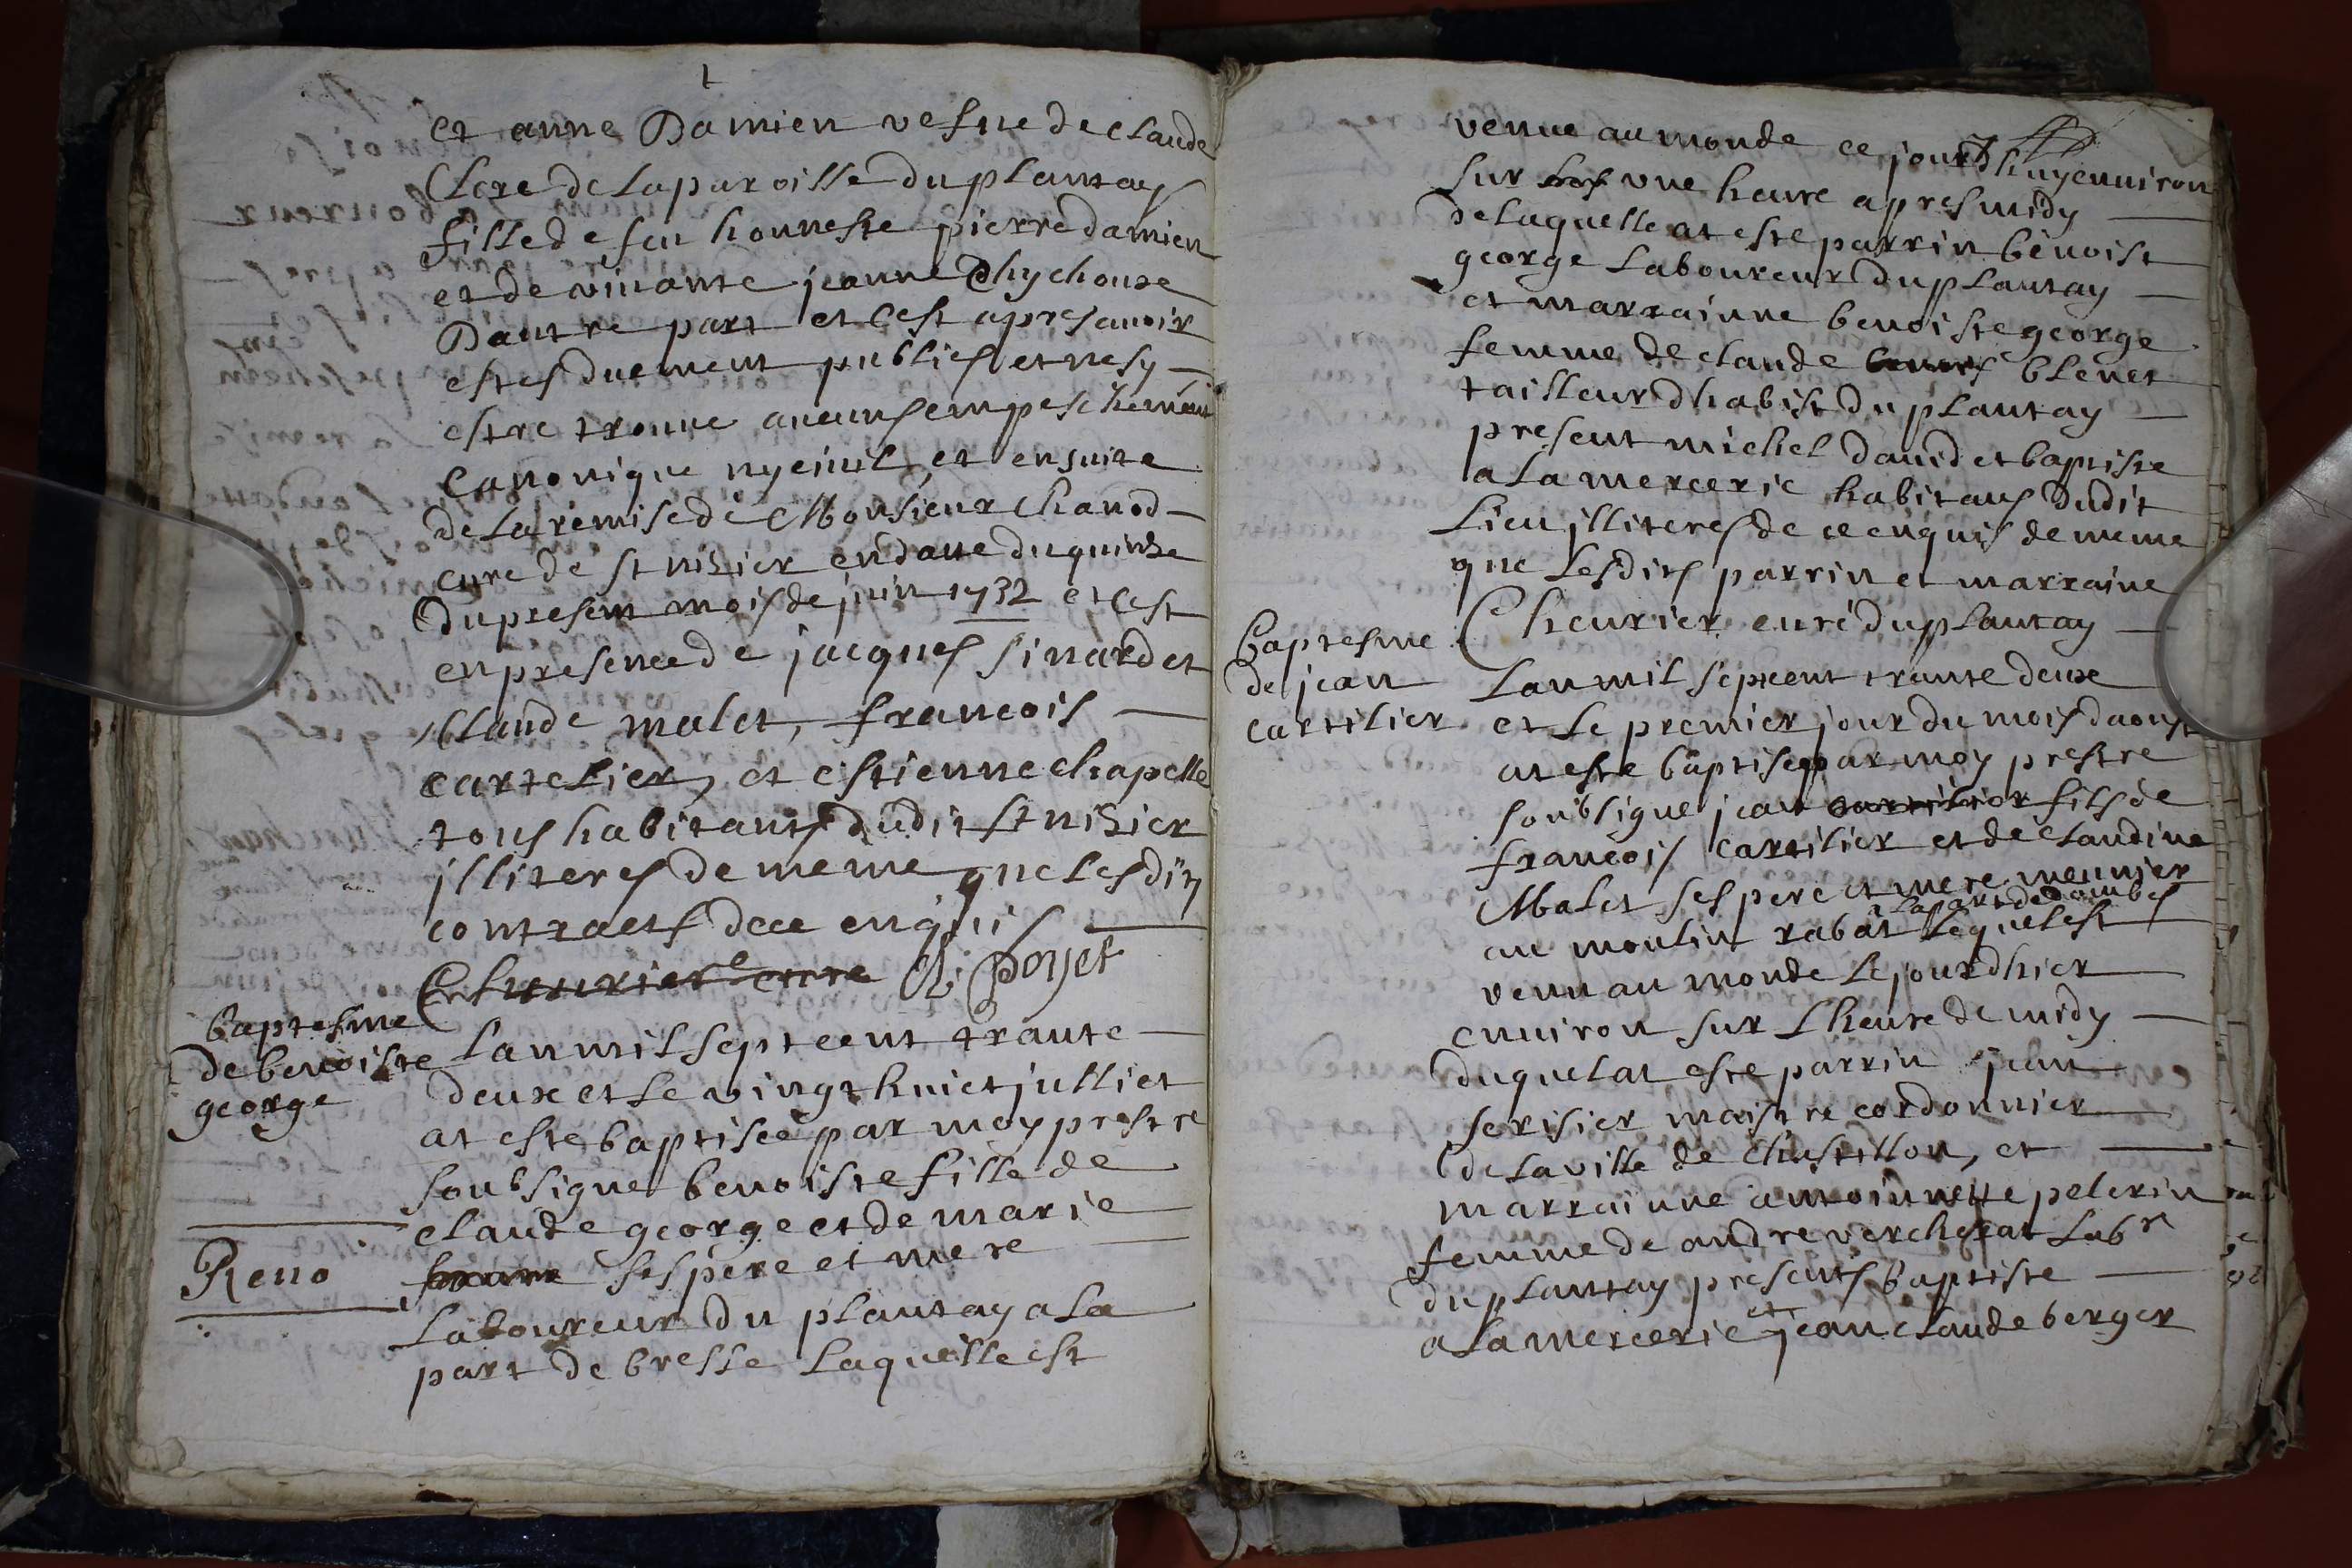 et anne Damien vefue de claude
Clere de la paroisse du plantay
fille de feu honneste pierre damien
et de viuante jeanne Dhychoux
Dautre part et cest apres auoir
estes duement publies et nesy
estre trouue aucuns empeschement
Canonique ny ciuil, et ensuite
de la remise de Monsieur Chanod
cure de st nizier en datte du quinze
du present mois de juin 1732 et cest
en presence de jacques sinard et
Claude malet, francois
cartelier, et estienne chapelle
tous habitants dudit St nizier
jlliteres de meme que lesdits
contracts de ce enquis
Cheurier cure Ch: poyet
baptesme
de benoiste
george
Lan mil sept cent trante
deux et le vingt huict julliet
at este baptisee par moy prestre
soubsigne benoiste fille de
claude george et de marie
Reno
ses pere et mere
laboureur du plantay a la
part de bresse laquelle est
venue au monde ce jourdhuy enuiron
sur une heure apres midy
de laquelle at este parrin benoist
george laboureur du plantay
et marrainne benoiste george
femme de claude blenet
tailleur dhabist du plantay
present michel dauid et baptiste
a la mercerie habitans dudit
lieu jlliteres de ce enquis de meme
que lesdits parrin et marraine
Cheurier curé du plantay
baptesme
de jean
cartilier
Lan mil sept cent trante deux
et le premier jour du mois daoust
at este baptise par moy prestre
soubsigne jean cartilier fils de
francois cartilier et de claudine
Malet ses pere et mere meunier
a la part de dombes
au moulin rabat lequel est
venu au monde le jourdhier
enuiron sur Lheure de midy
duquel at este parrin jean
serisier maistre cordonnier
de la ville de chastillon, et
marrainne antoinnette pelerin
femme de andre vercherat labr
du plantay presents baptiste
a la mercerie et jean claude berger